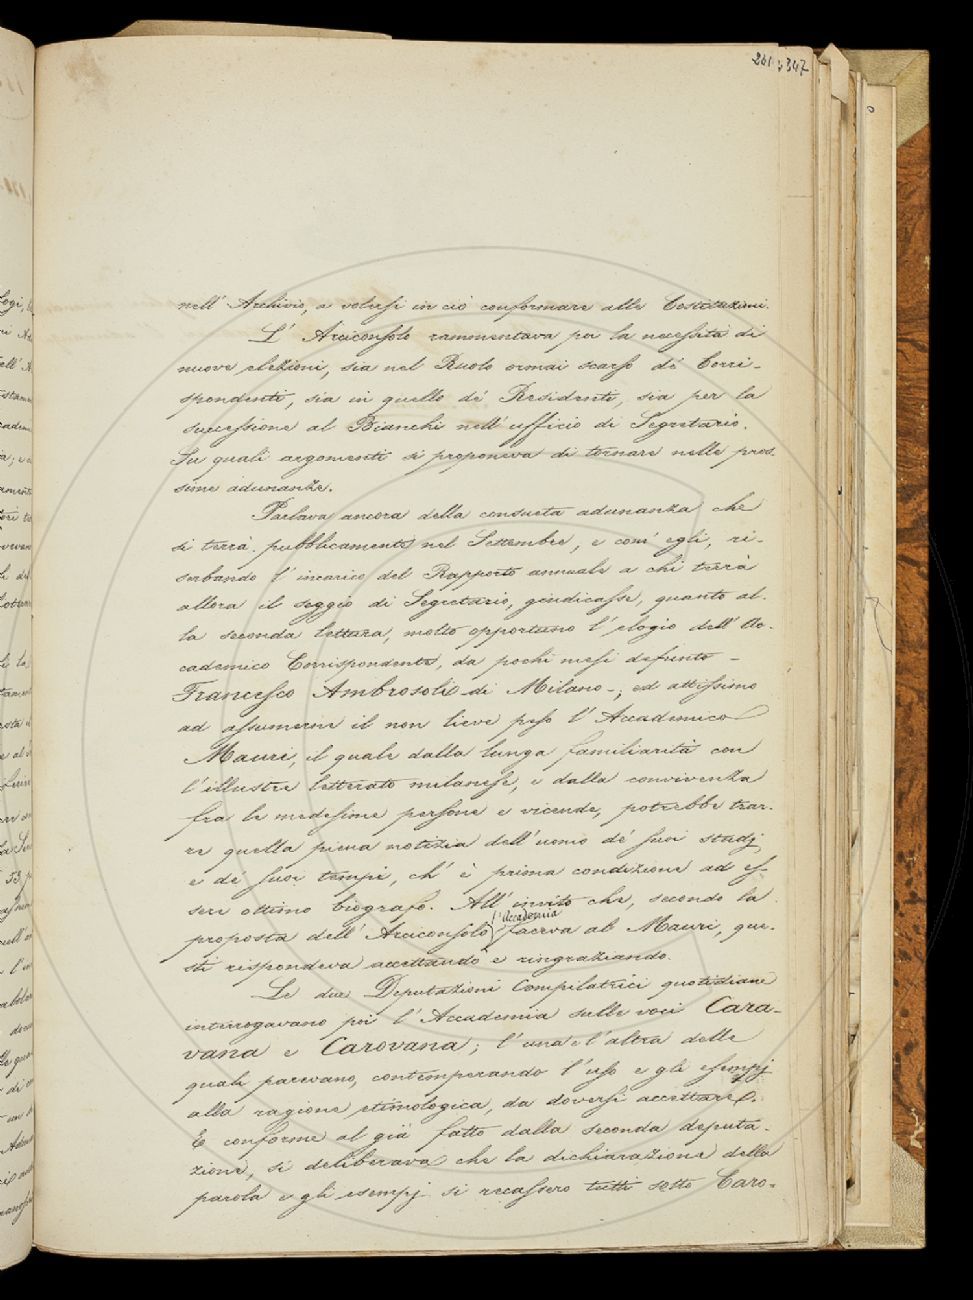 347
nell' Archivio, e volersi in ciò conformare alle Costituzioni.
L' Arciconsolo rammentava poi la necessità di
nuove elezioni, sia nel Ruolo ormai scarso de' Corri-
spondenti, sia in quello de' Residenti, sia per la
successione al Bianchi nell' ufficio di Segretario.
Su quali argomenti si proponeva di tornare nelle pros-
sime adunanze.
Parlava ancora della consueta adunanza che
si terrà pubblicamente nel Settembre, e com' egli, ri-
serbando l' incarico del Rapporto annuale a chi terrà
allora il seggio di Segretario, giudicasse, quanto al-
la seconda lettura, molto opportuno l' elogio dell' Ac-
cademico Corrispondente, da pochi mesi defunto -
Francesco Ambrosoli di Milano -; ed attissimo
ad assumerne il non lieve peso l' Accademico
Mauri, il quale dalla lunga familiarità con
l'illustre letterato milanese, e dalla convivenza
fra le medesime persone e vicende, potrebbe trar-
re quella piena notizia dell' uomo de' suoi studj
e de' suoi tempi, ch' è prima condizione ad es-
sere ottimo biografo. All' invito che, secondo la
proposta dell' Arciconsolo l'Accademia faceva al Mauri, que-
sti rispondeva accettando e ringraziando.
Le due Deputazioni Compilatrici quotidiane
interrogavano poi l' Accademia sulle voci Cara-
vana e Carovana; l' una e l' altra delle
quali parevano, contemperando l' uso e gli esempj
alla ragione etimologica, da doversi accettare.
E conforme al già fatto dalla seconda deputa-
zione, si deliberava che la dichiarazione della
parola e gli esempj si recassero tutti sotto Caro-